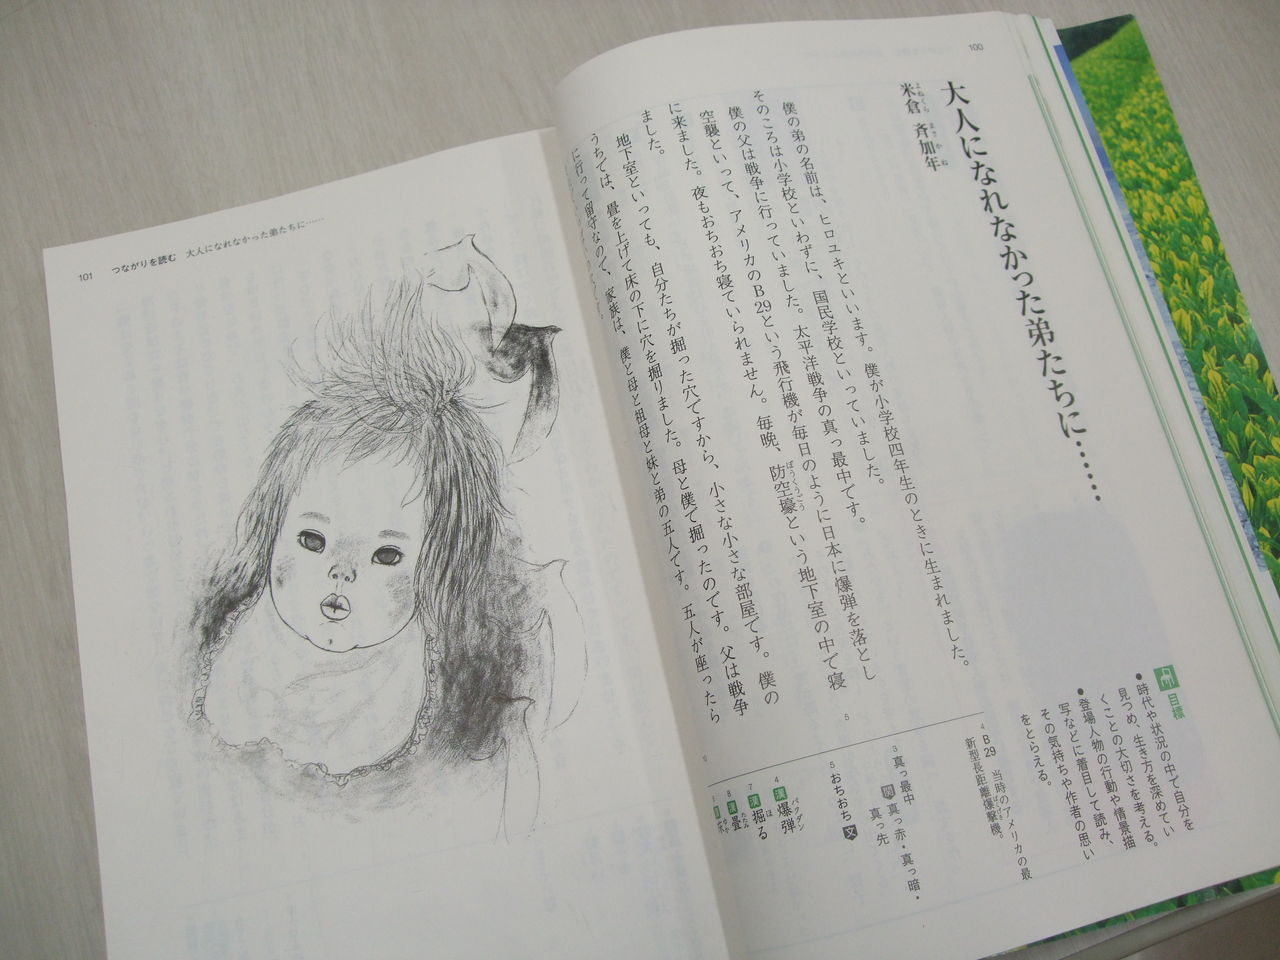 100
大人になれなかった弟たちに……
米倉 斉加年
よねくら まさかね
僕の弟の名前は、ヒロユキといいます。僕が小学校四年生のときに生まれました。
そのころは小学校といわずに、国民学校といっていました。
僕の父は戦争に行っていました。太平洋戦争の真っ最中です。
空襲といって、アメリカのB29という飛行機が毎日のように日本に爆弾を落とし
に来ました。夜もおちおち寝ていられません。毎晩、防空壕という地下室の中で寝
ぼうくうごう
ました。
地下室といっても、自分たちが掘った穴ですから、小さな小さな部屋です。僕の
うちでは、畳を上げて床の下に穴を掘りました。母と僕で掘ったのです。父は戦争
に行って留守なので、家族は、僕と母と祖母と妹と弟の五人です。五人が座ったら
5
10
目標
●時代や状況の中で自分を
見つめ、生き方を深めてい
くことの大切さを考える。
●登場人物の行動や情景描
写などに着目して読み、
その気持ちや作者の思い
をとらえる。
4 B29 当時のアメリカの最
新型長距離爆撃機。
ばくげきき
3 真っ最中
関 真っ赤・真っ暗・
真っ先
5 おちおち 文
4 漢 爆弾
バクダン
7 漢 掘る
ほ
8 漢 畳
たたみ
101 つながりを読む 大人になれなかった弟たちに……